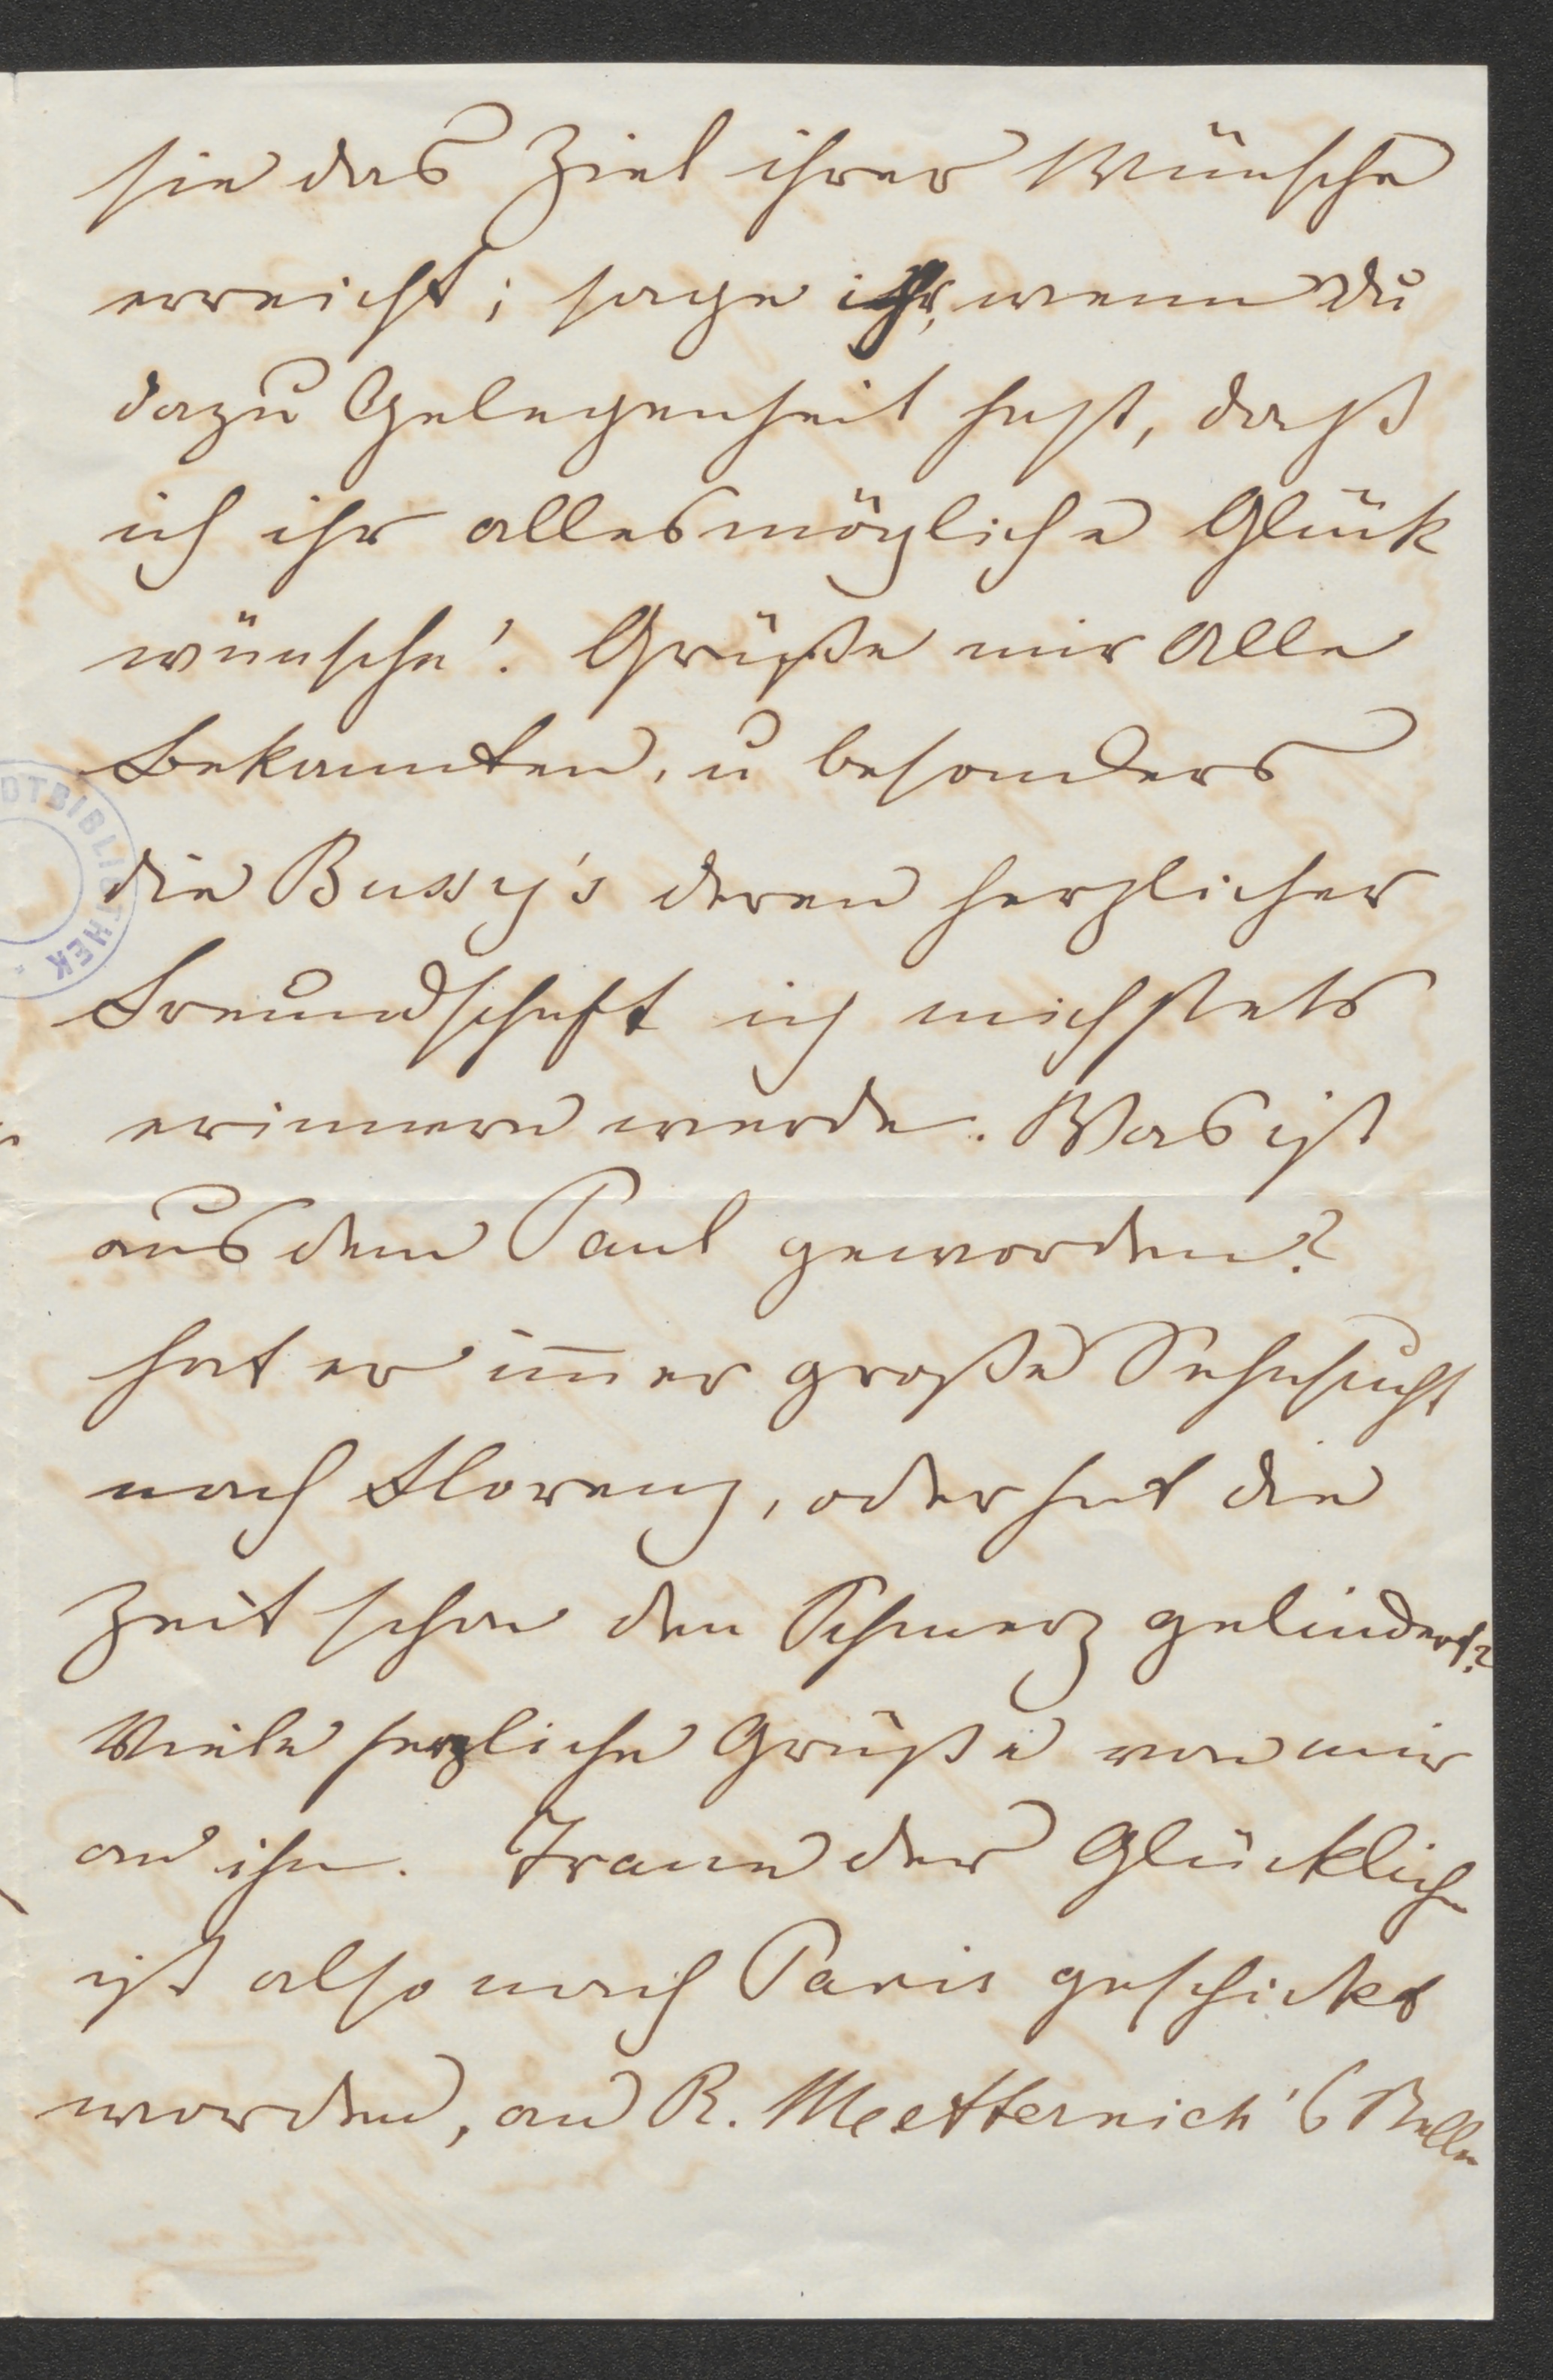 sie das Ziel ihrer Wünsche
erreicht; sage ihr, wenn Du
dazu Gelegenheit hast, daß
ich ihr alles mögliche Glück
wünsche! Grüße mir Alle
Bekannten, u besonders
die Bussy's deren herzlicher
Freundschaft ich mich stets
erinnern werde. Was ist
aus dem Paul geworden?
hat er im̄er große Sehnsucht
nach Florenz, oder hat die
Zeit schon den Schmerz gelindert?
Viele herzliche Grüße von mir
an ihn. der Glückliche
ist also nach Paris geschickt
worden, an R. Metternich's Stelle
DTBIBLIOTHEK